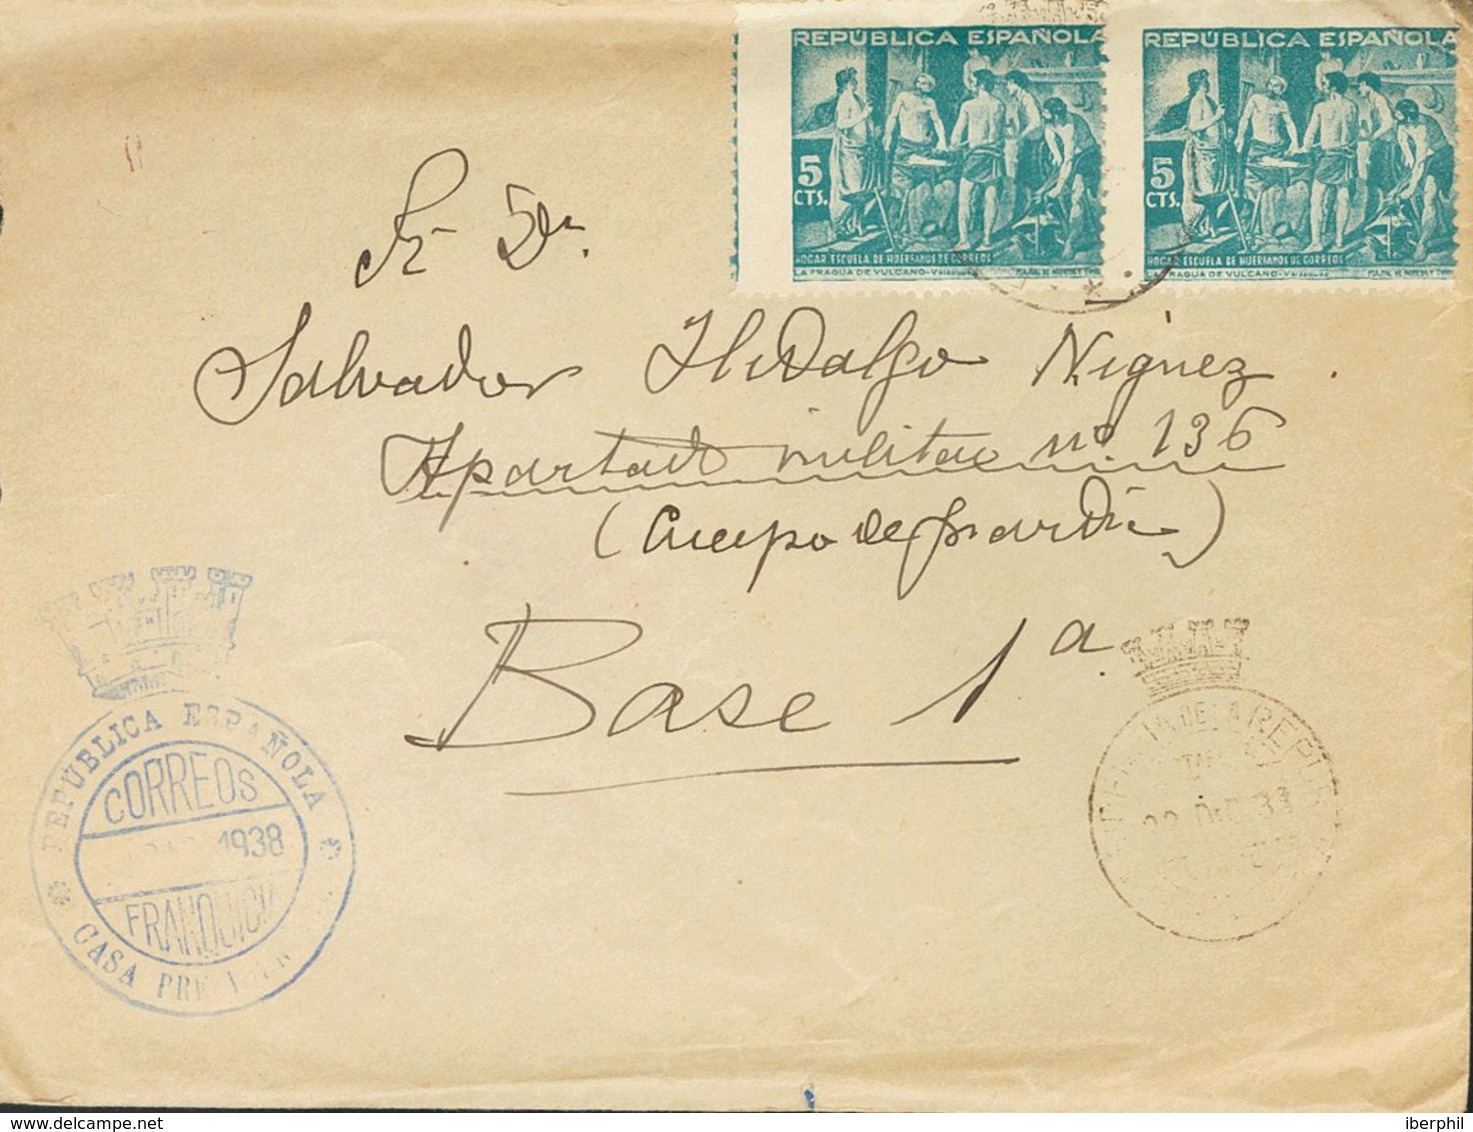 REPÚBLICA ESPAÑOLA
5
CTS.
HOGAR ESCUELA DE HUERFANOS DE CORREOS
LA FRAGUA DE VULCANO-VELAZQUEZ
REPÚBLICA ESPAÑOLA
5
CTS.
HOGAR ESCUELA DE HUERFANOS DE CORREOS
FRAGUA DE VULCANO-VELAZQUEZ
Sr Dn.
Salvador Hidalgo Niguez.
Apartado militar nº. 136
(Cuerpo de guardia)
Base 1ª
REPÚBLICA ESPAÑOLA
CORREOS
1938
FRANQUICIA
CASA
DE LA REPU
iberphil